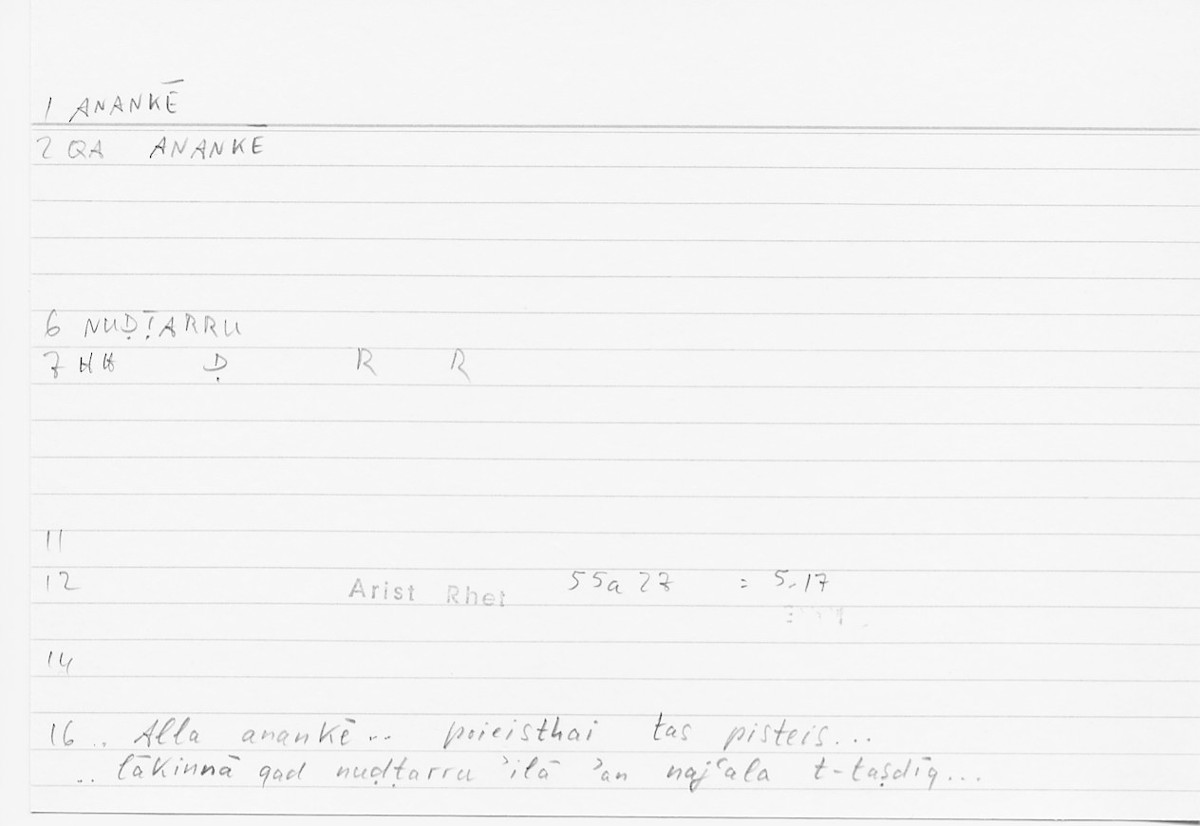 1 ANANKĒ
2 QA ANANKĒ
6 NUḌṬARRU
7 HH Ḍ R R
11
12 Arist Rhet 55a27 = 5,17
14
16 .. Alla anankē .. poieisthai tas pisteis...
.. lākinnā qad nuḍṭarru ʾilā ʾan najʿala t-taṣdīq...